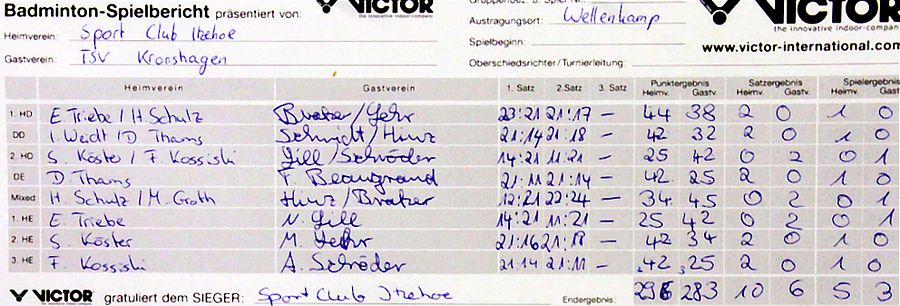 Badminton-Spielbericht präsentiert von: VICTOR the innovative indoor-company
Heimverein: Sport Club Itzehoe
Gastverein: TSV Kronshagen
Austragungsort: Wellenkamp
VICTOR the innovative indoor-company
Spielbeginn:
www.victor-international.com
Oberschiedsrichter/Turnierleitung:
Heimverein Gastverein 1. Satz 2. Satz 3. Satz Punktergebnis Heimv. Gastv. Satzergebnis Heimv. Gastv. Spielergebnis Heimv. Gastv.
1. HD E. Triebe / H. Schulz Braker/Gehr 23:21 21:17 – 44 38 2 0 1 0
DD I. Weidt / D. Thams Schmidt/Hinz 21:14 21:18 – 42 32 2 0 1 0
2. HD S. Köster / F. Kossiski Gill/Schröder 14:21 11:21 – 25 42 0 2 0 1
DE D. Thams F. Beaugrand 21:11 21:14 – 42 25 2 0 1 0
Mixed H. Schulz / M. Groth Hinz/Braker 12:21 22:24 – 34 45 0 2 0 1
1. HE E. Triebe N. Gill 14:21 11:21 – 25 42 0 2 0 1
2. HE S. Köster M. Gehr 21:16 21:18 – 42 34 2 0 1 0
3. HE F. Kossiski A. Schröder 21:14 21:11 – 42 25 2 0 1 0
VICTOR gratuliert dem SIEGER: Sport Club Itzehoe Endergebnis: 296 283 10 6 5 3